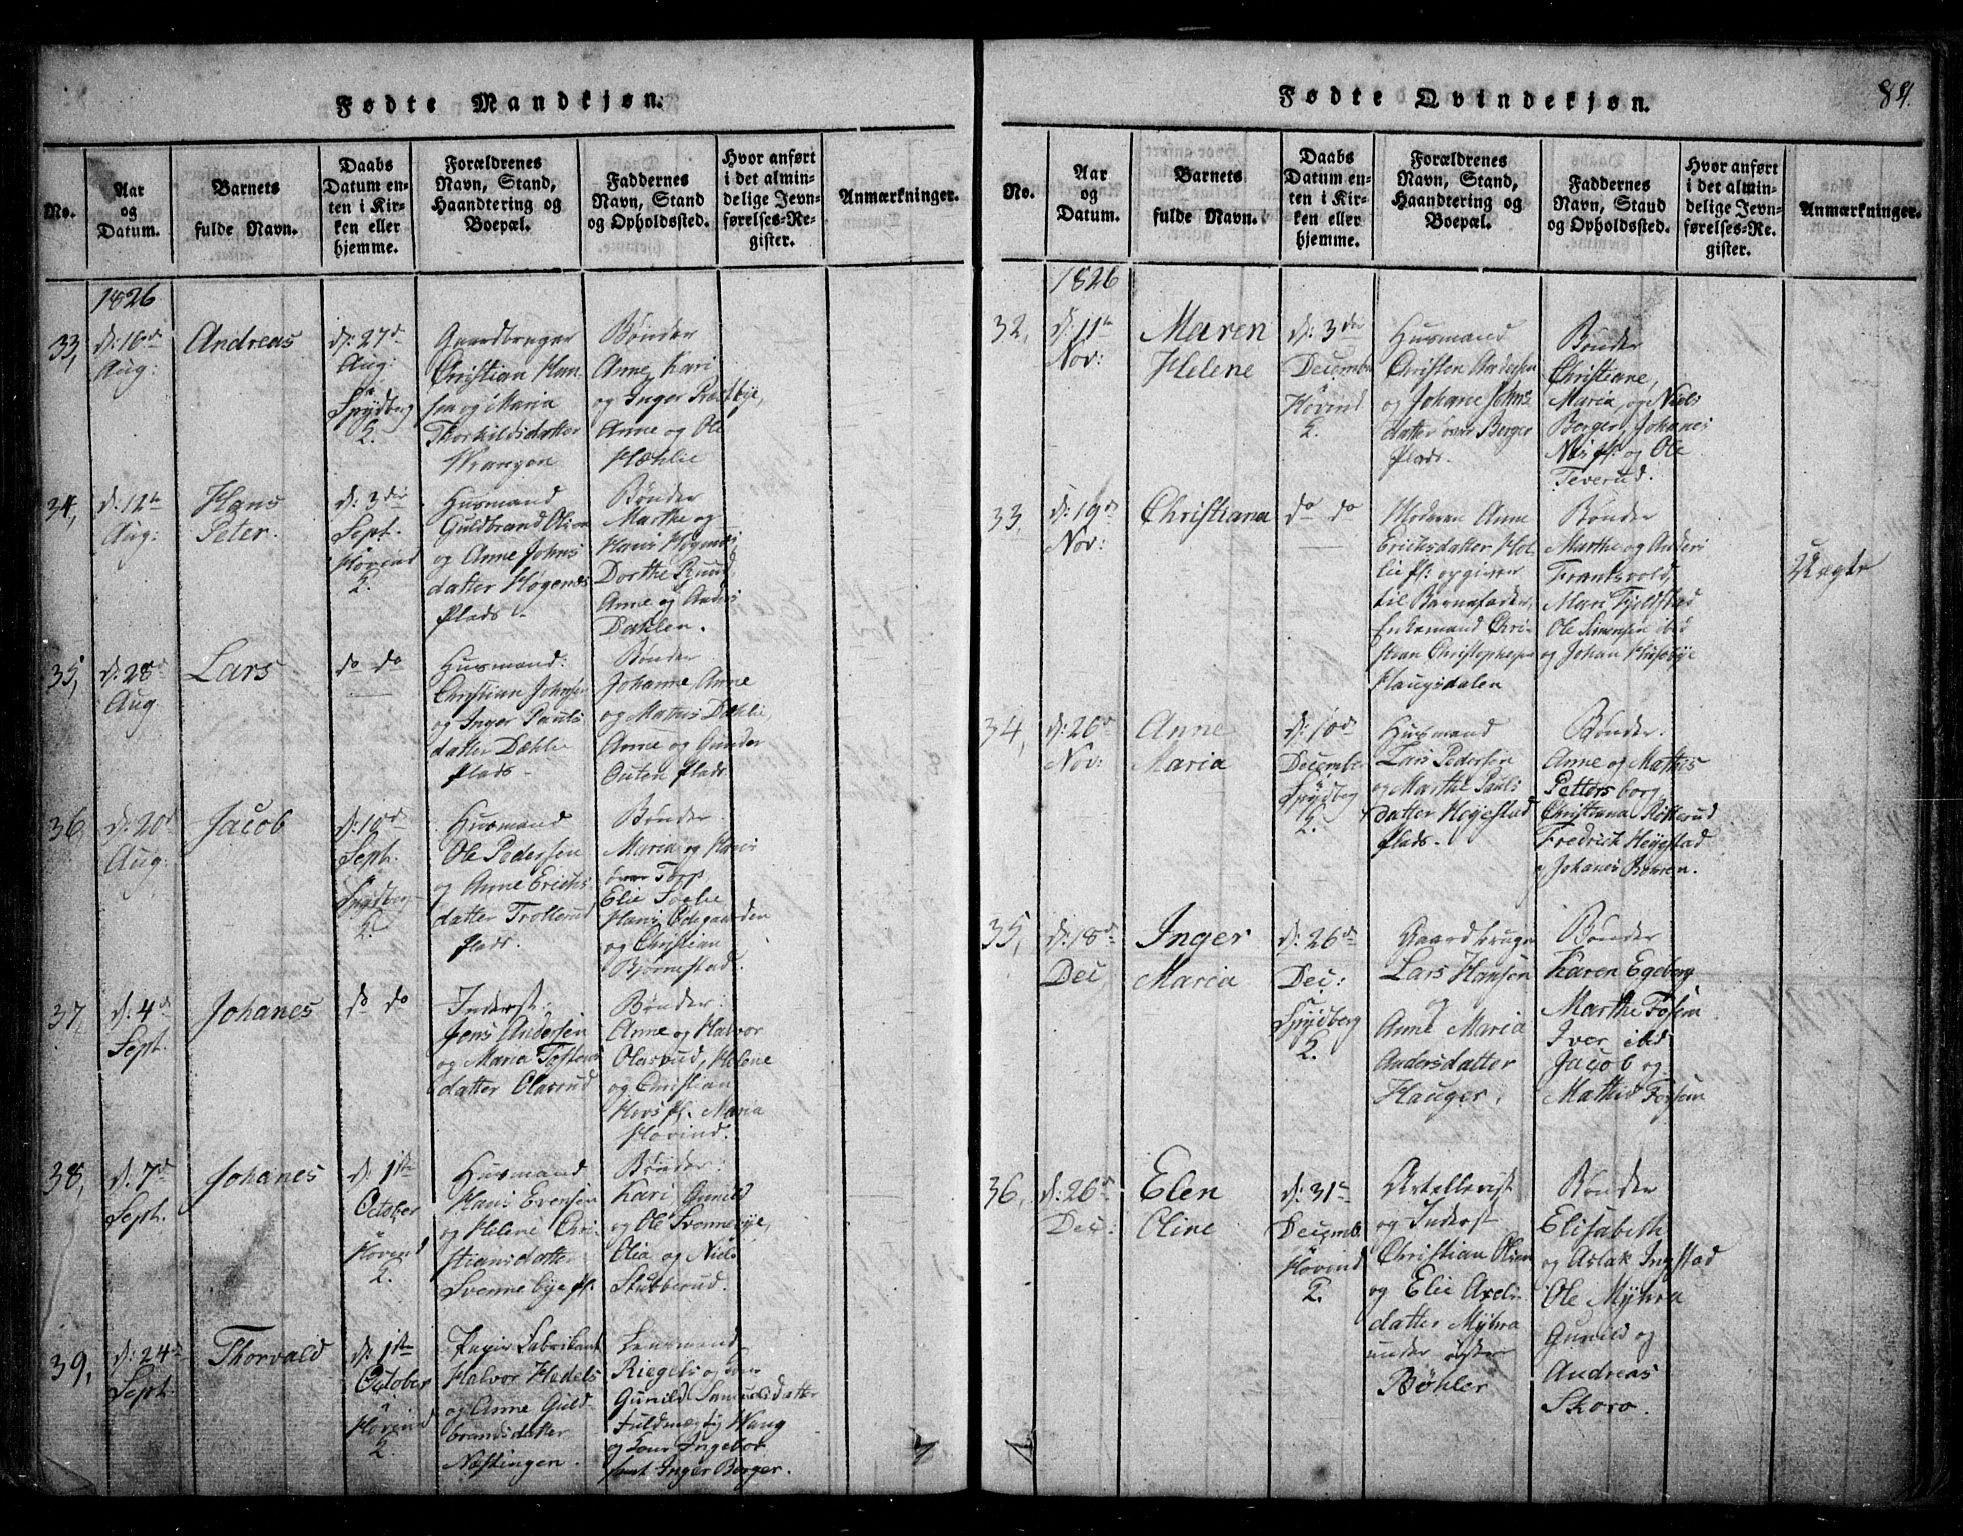 Fødte Mandkjøn.
No.
Aar
og
Datum.
Barnets
fulde Navn.
Daabs
Datum en-
ten i Kir-
ken eller
hjemme.
Forældrenes
Navn, Stand,
Haandtering og
Boepæl.
Faddernes
Navn, Stand
og Opholdssted.
Hvor anført
i det almin-
delige Jevn-
førelses-Re-
gister.
Anmærkninger.
1826
33,
d: 16de
Aug:
Andreas
d: 27de
Aug:
Spydberg
2.
Gaardbruger
Christian Han-
sen og Maria
Thorkildsdatter
Wrangen
Bønder
Anne, Kari
og Inger Præstbye,
Anne og Ole
Mæhlie
34,
d: 12te
Aug:
Hans
Peter.
d: 3die
Sept.
Høvind
2.
Husmand
Guldbrand Olsen
og Anne Johns
datter Høgenæs
Plads.
Bønder
Marthe og
Hans Høgenæs,
Dorthe Ruud,
Anne og Anders
Dahlen.
35,
d: 28de
Aug.
Lars
do do
Husmand:
Christian Johnsen
og Inger Pauls
datter Dæhlie
Plads.
Bønder
Johanne Anne
og Mathis Dæhlie,
Anne og Gunder
Outen Plads
36,
d: 20de
Aug.
Jacob
d: 10de
Sept.
Spydberg
2.
Husmand
Ole Pedersen
og Anne Erichs
datter Trollerud
Plads.
Bønder
Maria og Hans
Torp
Elie
Hans Ødegaarden
og Christian
Bjørnestad.
37,
d: 4de
Sept.
Johanes
do do
Inderst:
Jens Andersen
og Maria Tostens
datter Olasrud
Bønder:
Anne og Halvor
Olasrud, Helene
og Christian
Maria
Høvind.
38,
d: 7de
Sept.
Johanes
d: 1ste
October
Høvind
2.
Husmand
Hans Evensen
og Helene Chri-
stiansdatter
Svennebye Pl.
Bønder:
Kari Gunild
og Ole Svennebye,
Olia og Niels
Stubberud.
39,
d: 24de
Sept.
Thorvald
d: 1ste
October
Høvind
2.
Papir Fabrikant
Halvor Hedels
og Anne Guld-
brandsdatter
Næstingen.
Lensmand
Riegels og
Gunild Samuelsdatter
Fuldmægtig Wang
og Ingebor
samt Inger Berger.
84.
Fødte Qvindekjøn.
No.
Aar
og
Datum.
Barnets
fulde Navn.
Daabs
Datum en-
ten i Kir-
ken eller
hjemme.
Forældrenes
Navn, Stand,
Haandtering og
Boepæl.
Faddernes
Navn, Stand
og Opholdssted.
Hvor anført
i det almin-
delige Jevn-
førelses-Re-
gister.
Anmærkninger.
1826
32,
d: 11te
Nov:
Maren
Helene
d: 3die
Decembr
Høvind
2.
Husmand
Christen Andersen
og Johane Johns
datter Berger
Plads.
Bønder
Christiane,
Maria, og Niels
Berger, Johanes
Næs Pl. og Ole
Teverud.
33,
d: 19de
Nov:
Christiana
do do
Moderen Anne
Erichsdatter Hol-
lie Pl: opgiver
til Barnefader,
Enkemand Chri-
stian Christophersen
Haugsdalen
Bønder
Marthe og Anders
Frantsvold,
Mari Fjeldstad
Ole Simensen ibid
og Johan Huseby
Uægte
34,
d: 26de
Nov:
Anne
Maria
d: 10de
December
Spydberg
2.
Husmand
Lars Pedersen
og Marthe Pauls
datter Høgestad
Plads.
Bønder.
Anne og Mathis
Pettersborg
Christiana Rotterud
Fredrich Høgestad
og Johanes Bohren.
35,
d: 18de
Dec
Inger
Maria
d: 26de
Dec:
Spydberg
2.
Gaardbruger
Lars Hansen
og
Anne Maria
Andersdatter
Hauger.
Bønder
Karen Egeberg
Marthe Fossum
Iver ibid
Jacob og
Mathis Fossum
36,
d: 26de
Dec:
Elen
Oline
d: 31te
Decemb.
Høvind
2.
Artellerist
og Inderst
Christian Olsen
og Elie Axels
datter Myhra
under østre
Bøhler
Bønder
Elisabeth
og Aslak Ingstad
Ole Myhra
Gunild og
Andreas
Skoro.